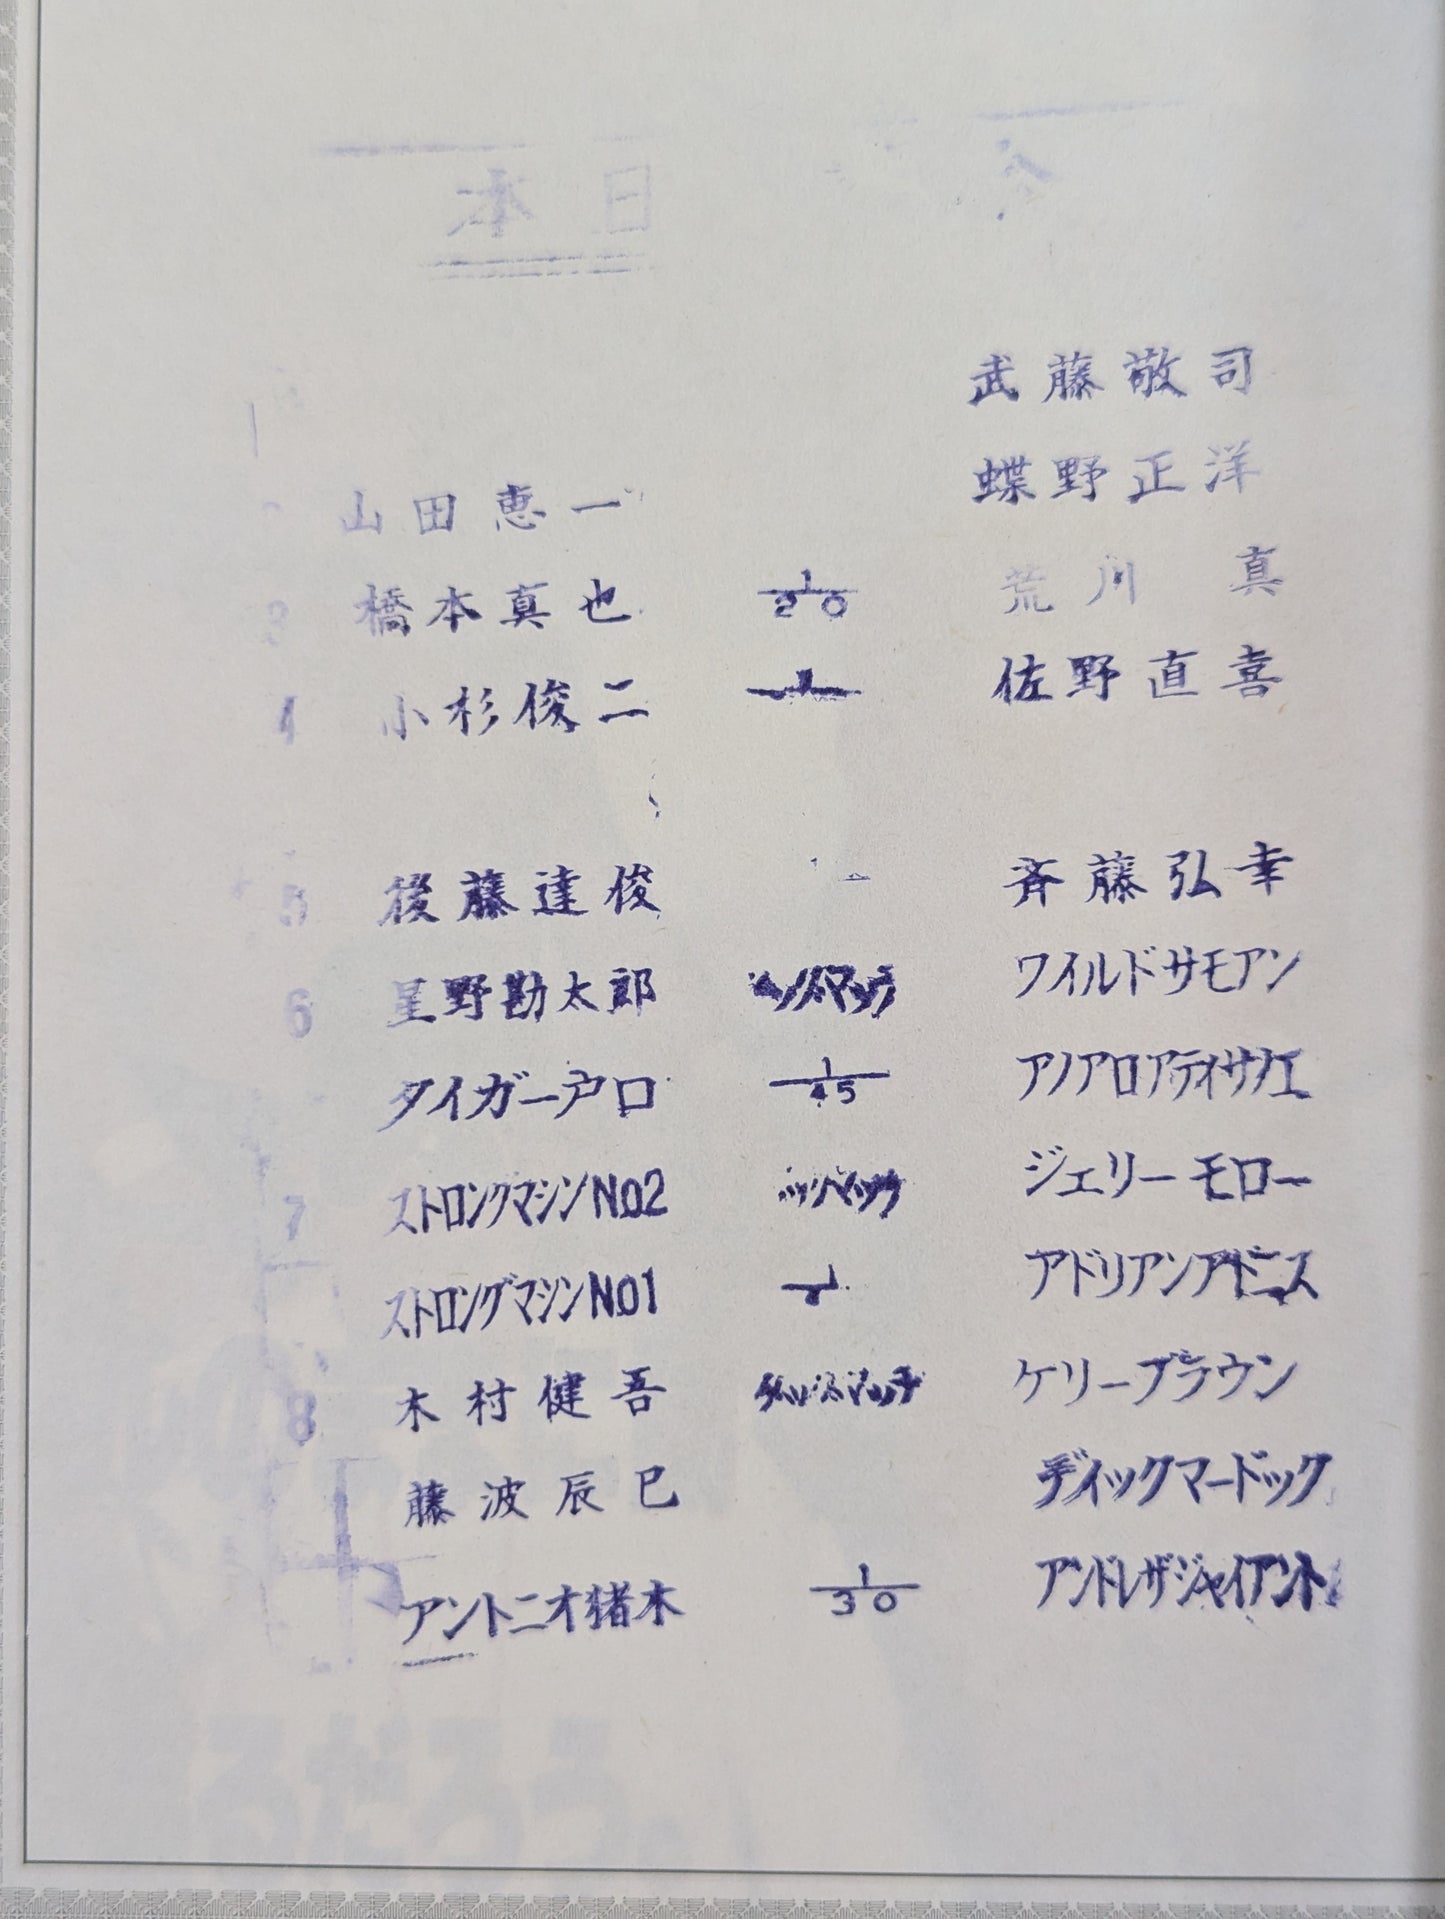 武藤敬司
蝶野正洋
2 山田恵一
3 橋本真也 1/20 荒川 真
4 小杉俊二 1 佐野直喜
5 後藤達俊 斉藤弘幸
6 星野勘太郎 ワイルドサモアン
タイガー戸口 1/45 アノアロアティサノエ
7 ストロングマシンNo2 ジェリーモロー
ストロングマシンNo1 1 アドリアンアドニス
8 木村健吾 ケリーブラウン
藤波辰巳 ディックマードック
アントニオ猪木 1/30 アンドレザジャイアント